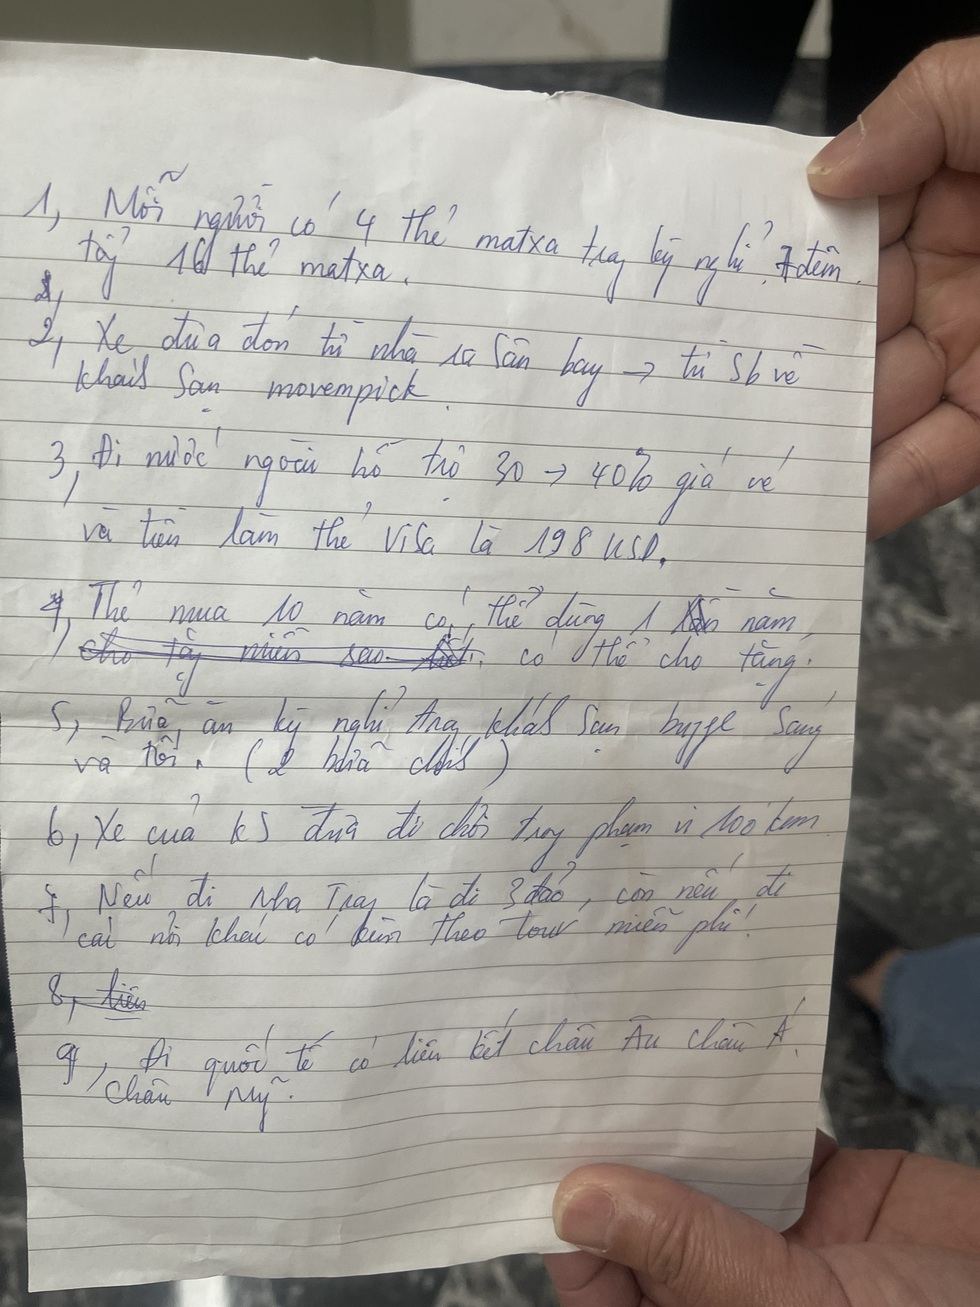 1, Mỗi người có 4 thẻ matxa trog kỳ nghỉ 7 đêm.
tậg 16 thẻ matxa.
2, Xe đưa đón từ nhà ra sân bay → từ sb về
khách sạn movempick.
3, Đi nước ngoài hỗ trợ 30 → 40% giá vé
và tiền làm thẻ visa là 198 USD.
4, Thẻ mua 10 năm có thể dùng 1 năm,
có thể cho tặng.
5, Bữa ăn kỳ nghỉ trog khách sạn sáng
và tối. (2 bữa chính)
6, Xe của kS đưa đi chơi trog phạm vi 100 km.
7, Nếu đi Nha Trag là đi 3 đảo, còn nếu đi
các nơi khác có kèm theo tour miễn phí!
8, tiền
9, Đi quốc tế có liên kết châu Âu châu Á.
Châu Mỹ.